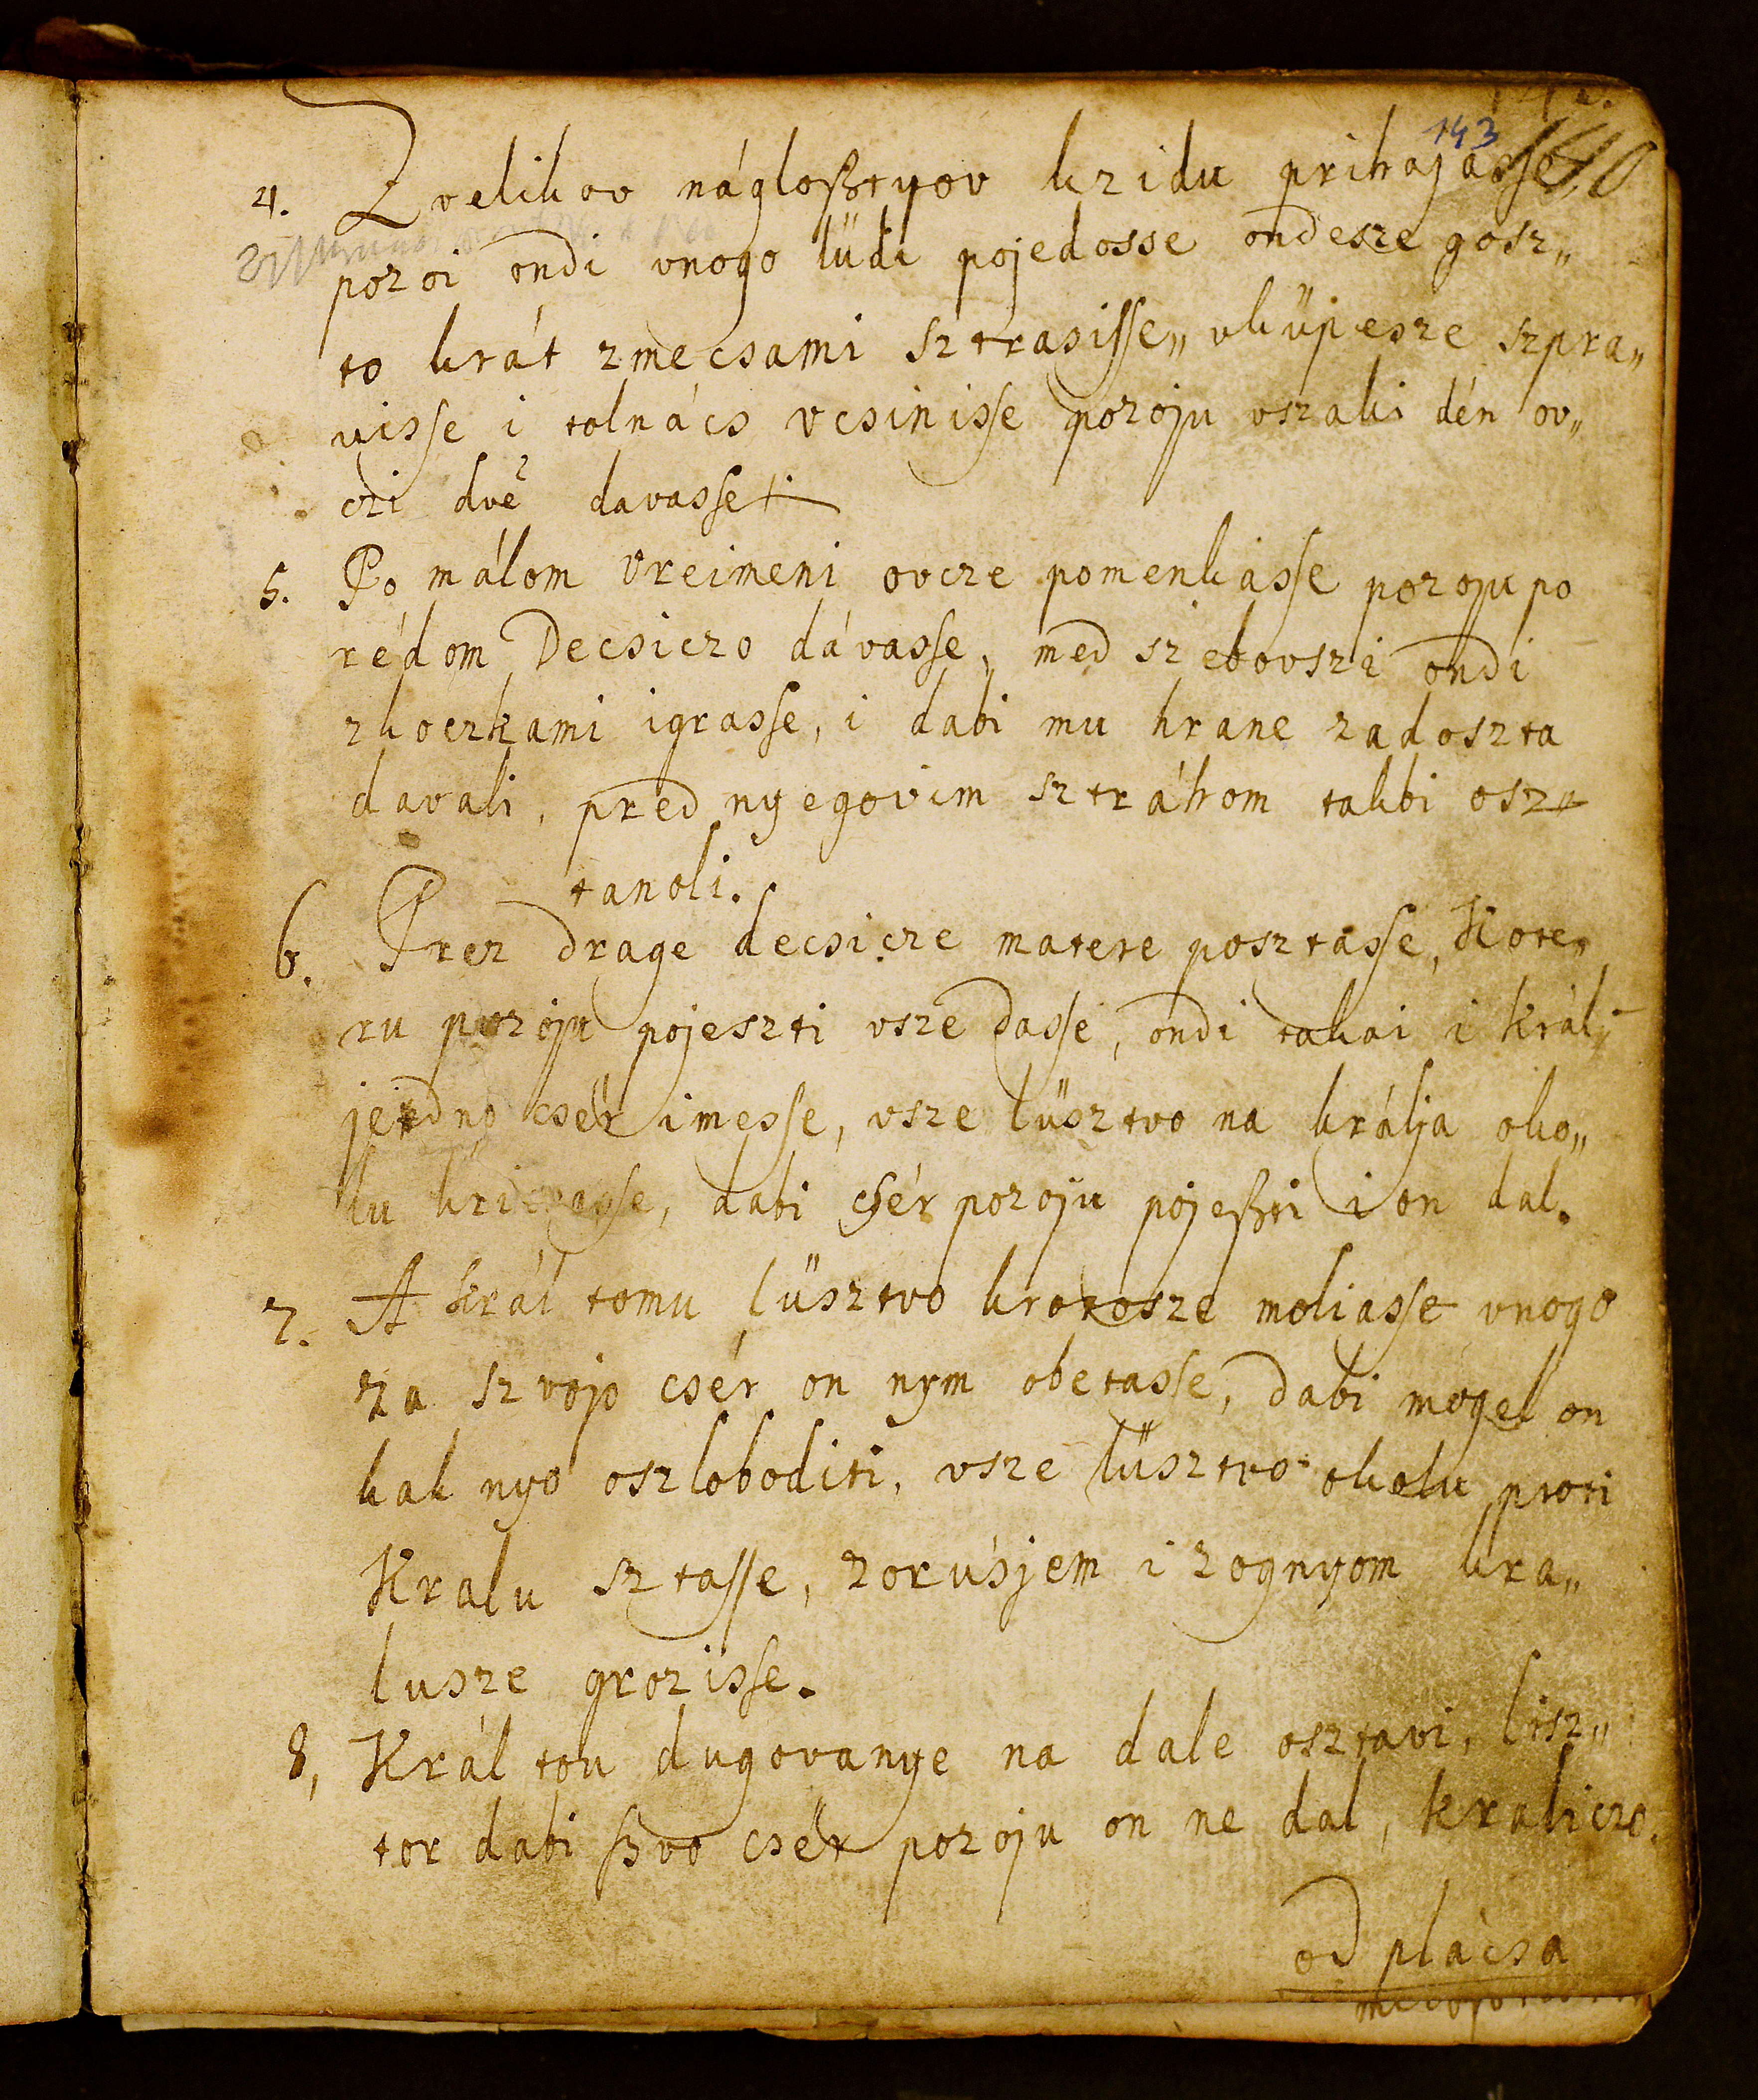 143 140
4. Z velikov nágloßtyov kzidu prihajasse
pozoi ondi vnogo lüdi pojedosse ondesze gosz„
to krát zmecsami sztrasisse„ vküpesze szpra„
visse i tolnács vcsinisse pozoju vszaki dén ov„
czi dvē davasse
5. Po málom vreimeni ovcze pomenkasse pozoju po
rédom Decsiczo dávasse, med szebovszi ondi
zkoczkami igrasse, i dabi mu hrane zadoszta
davali, pred nyegovim sztráhom takbi osz
tanoli.
6. Prez drage decsicze matere posztasse, Kote„
ru pozoju pojeszti vsze dasse, ondi takai i králj
jedno csér imesse, vsze lüsztvo na králja oko„
lu kricsasse, dabi csér pozoju pojeßti i on dal.
7. A král tomu lüsztvo krotosze moliasse vnogo
za szvojo csér on nym obetasse, dabi mogel on
kak nyo oszloboditi, vsze lüsztvo okolu proti
Kralu sztasse, zorúsjem i zognyom kra„
lusze grozisse.
8, Král tou dugovanye na dale osztavi, lisz„
tor dabi ßvo csér pozoju on ne dal, kraliczo.
od plácsa